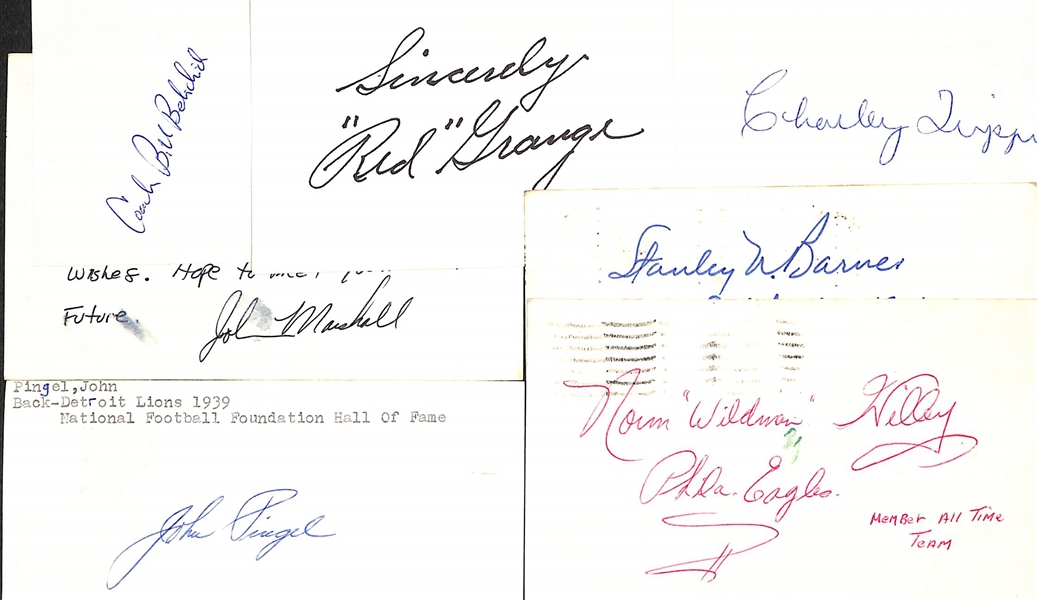 Coach Bill Belichick
Sincerely
"Red" Grange
Charley Trippi
Wishes. Hope to
Future.
John Marshall
Stanley N. Barnes
Pingel,John
Back-Detroit Lions 1939
National Football Foundation Hall Of Fame
John Pingel
Norm "Wildman" Willey
Phila. Eagles.
Member All Time
Team